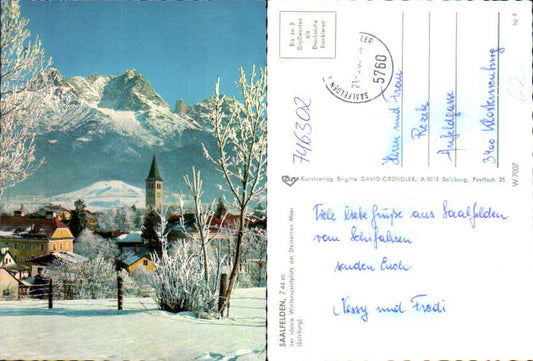 Bis zu 5
Grußworten
als
Drucksache
frankieren
5760
SAALFELDEN
746302
Herrn und Frau
Rezek
Aufeldgasse
3400 Klosterneuburg
hg 9
62
Kunstverlag Brigitte DAVID-GRÜNDLER, A-5013 Salzburg, Postfach 35
W 7007
Viele liebe Grüße aus Saalfelden
vom Schifahren
senden Euch
Nessy und Fredi
SAALFELDEN, 744 m
der ideale Wintersportplatz am Steinernen Meer
(Salzburg)